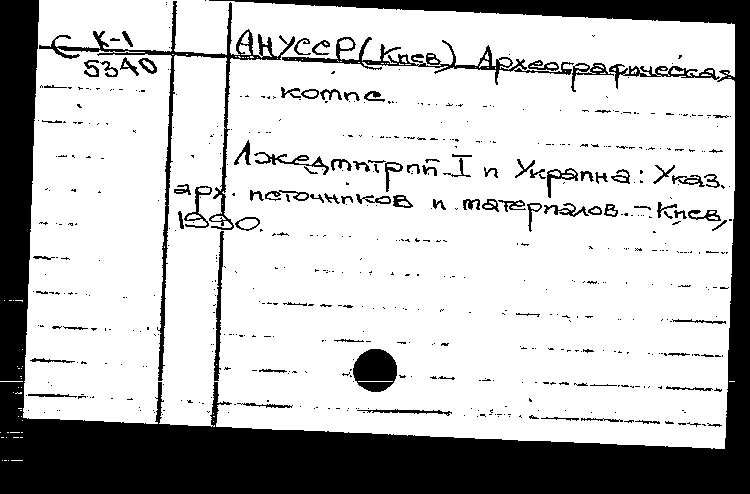 С К-1
5340
АНУССР (Киев) Археографическая
комис.
Лжедмитрий I и Украина: Указ.
арх. источников и материалов. – Киев,
1990.